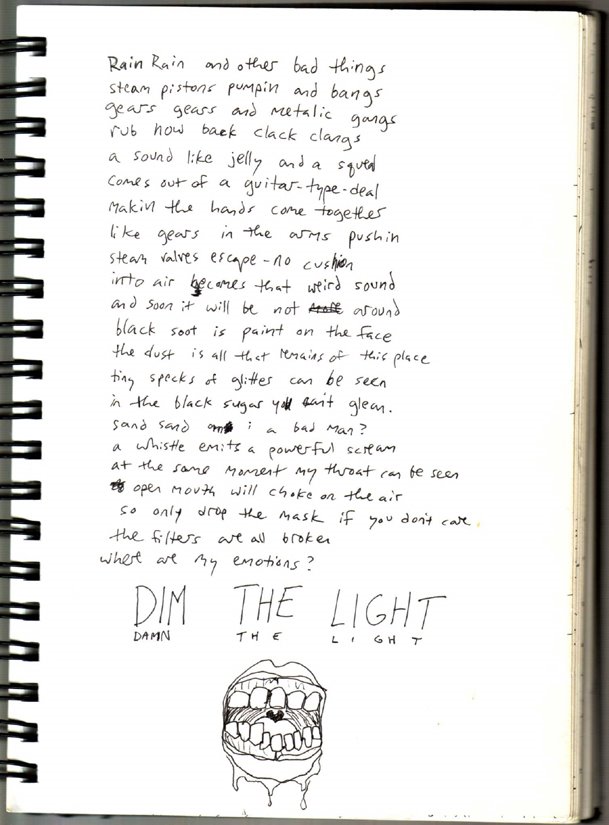 Rain Rain and other bad things
steam pistons pumpin and bangs
gears gears and metalic gangs
rub now back clack clangs
a sound like jelly and a squeal
comes out of a guitar-type-deal
makin the hands come together
like gears in the arms pushin
steam valves escape - no cushion
into air becomes that weird sound
and soon it will be not around
black soot is paint on the face
the dust is all that remains of this place
tiny specks of glitter can be seen
in the black sugar you can't glean.
sand sand am i a bad man?
a whistle emits a powerful scream
at the same moment my throat can be seen
open mouth will choke on the air
so only drop the mask if you don't care
the filters are all broken
where are my emotions?
DIM THE LIGHT
DAMN THE LIGHT